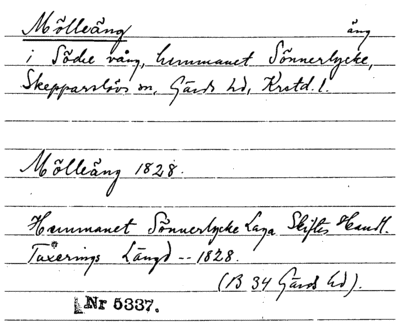 Mölleäng äng
i Södre vång, hemmanet Sönnerlycke,
Skepparslövs sn, Gärds hd, Krstd. l.
Mölleäng 1828.
Hemmanet Sönnerlycke Laga Skiftes Handl.
Taxerings Längd -- 1828.
(B 34 Gärds hd).
Nr 5337.